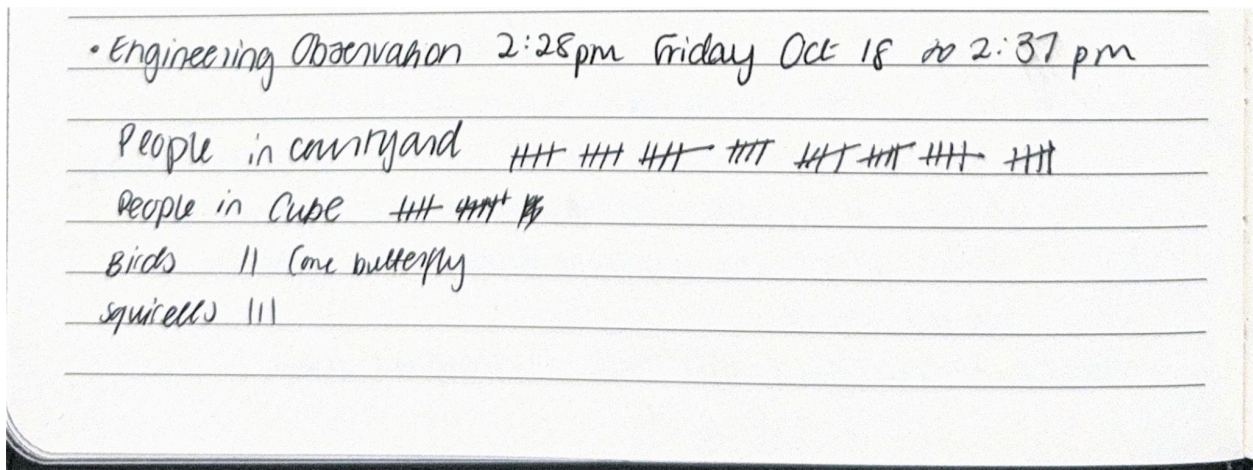 • Engineering Observation 2:28pm Friday Oct 18 to 2:37 pm
People in courtyard 卌 卌 卌 卌 卌 卌 卌 卌
People in Cube 卌 卌
Birds || (one butterfly
Squirells |||